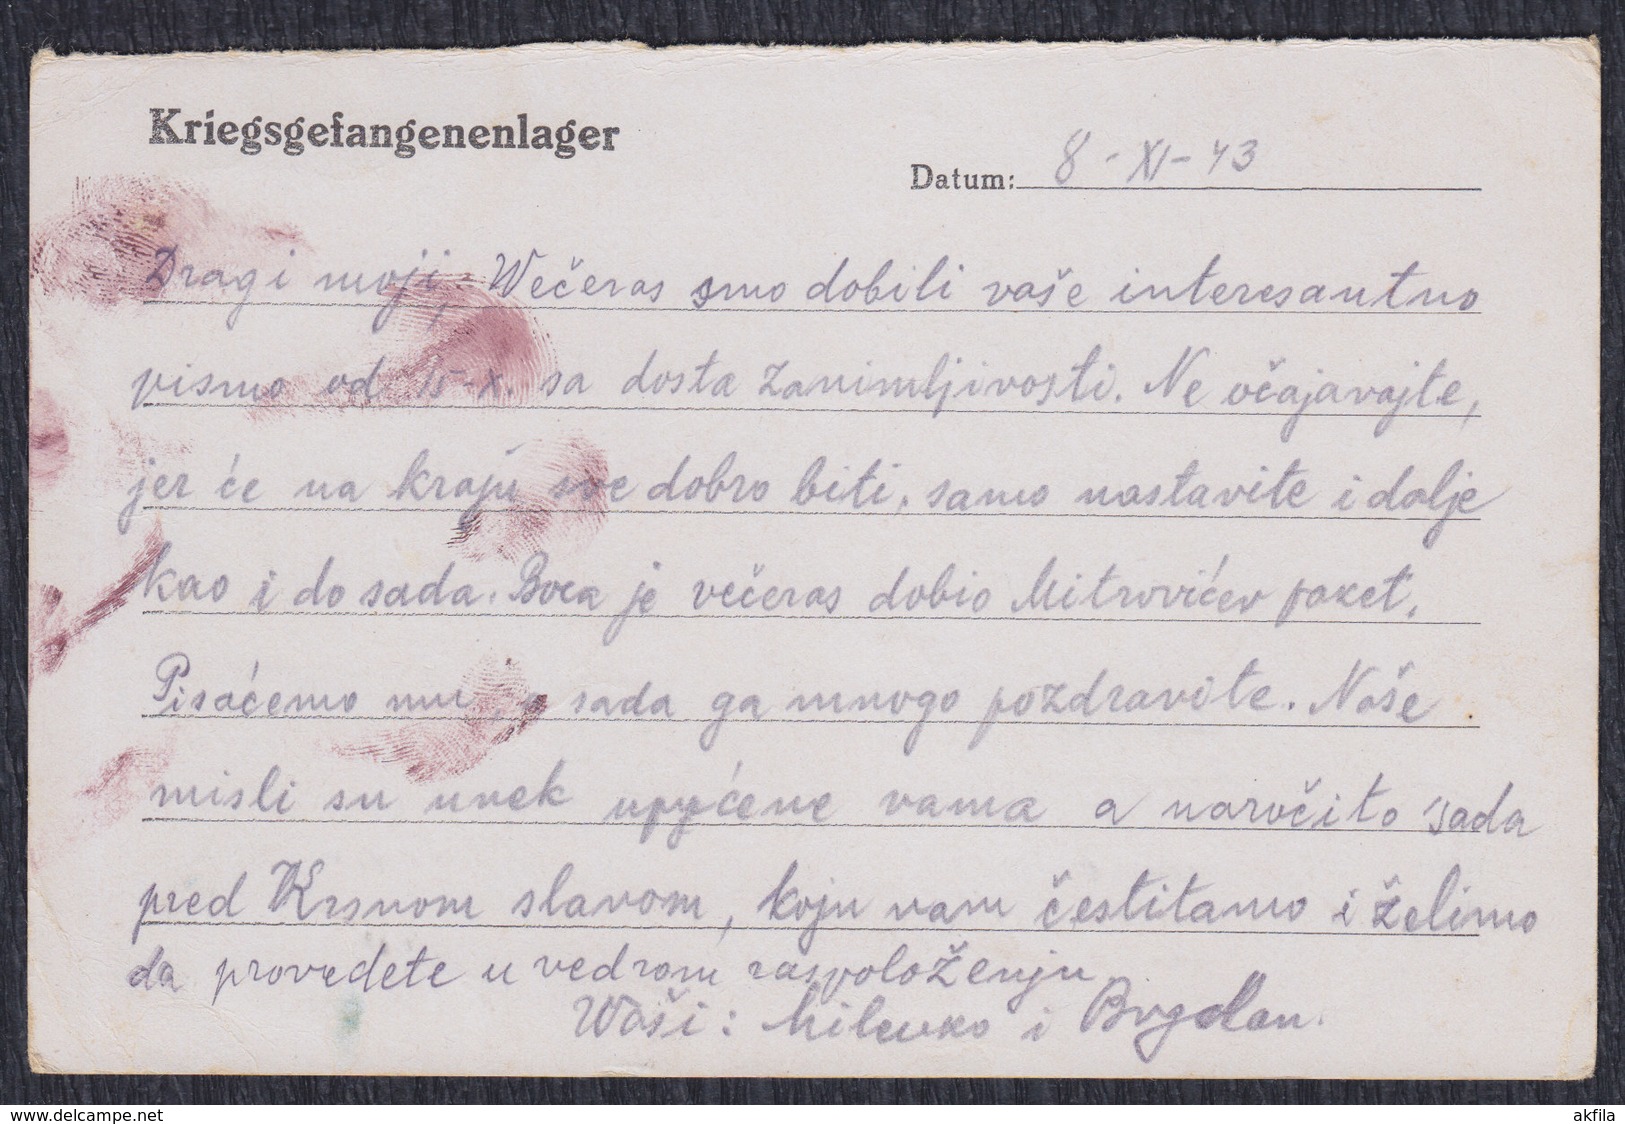 Kriegsgefangenenlager
Datum: 8-XI-43
Dragi moji, Večeras smo dobili vaše interesantno
pismo od 15-X. sa dosta zanimljivosti. Ne očajavajte,
jer će na kraju sve dobro biti, samo nastavite i dalje
kao i do sada. Boca je večeras dobio Mitrovićev paket.
Pisaćemo mu, a sada ga mnogo pozdravite. Naše
misli su uvek upućene vama a naročito sada
pred Krsnom slavom, koju vam čestitamo i želimo
da provedete u vedrom raspoloženju
Vaši: Milenko i Bogdan.
akfila